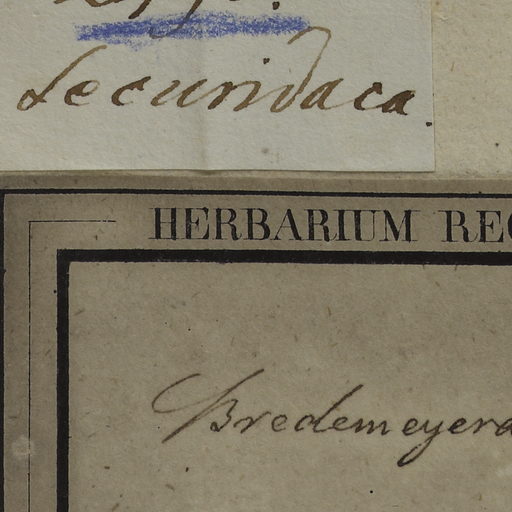 Securidaca.
HERBARIUM REG
Bredemeyera